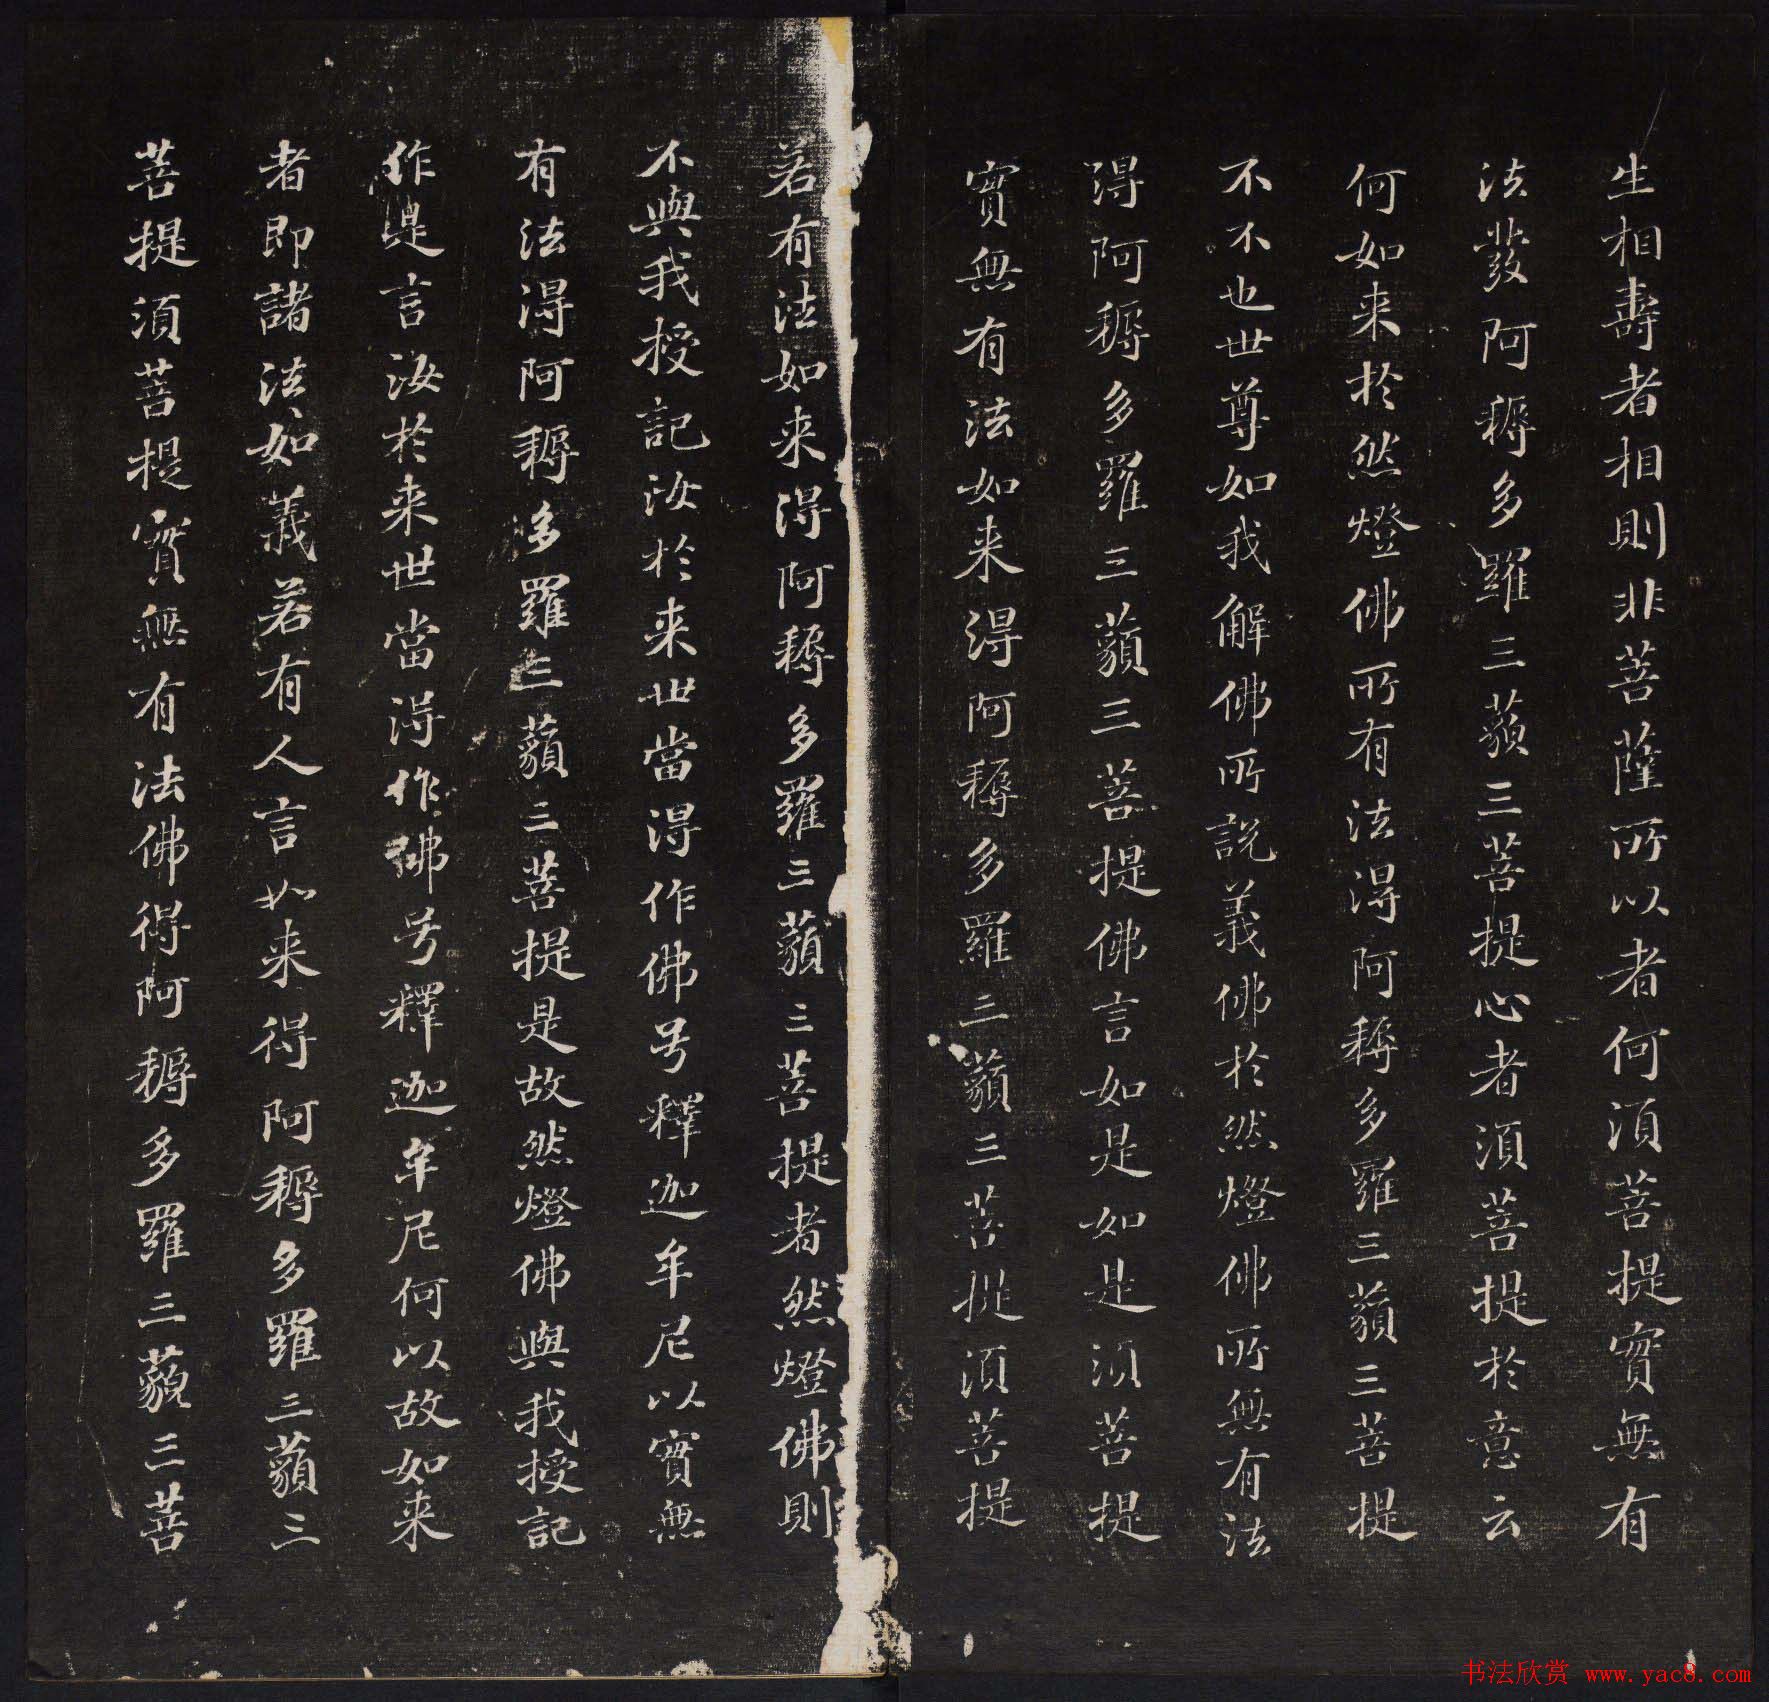 生相壽者相則非菩薩所以者何須菩提實無有
法發阿耨多羅三藐三菩提心者須菩提於意云
何如来於然燈佛所有法得阿耨多羅三藐三菩提
不不也世尊如我解佛所說義佛於然燈佛所無有法
得阿耨多羅三藐三菩提佛言如是如是須菩提
實無有法如来得阿耨多羅三藐三菩提須菩提
若有法如来得阿耨多羅三藐三菩提者然燈佛則
不與我授記汝於来世當得作佛号釋迦牟尼以實無
有法得阿耨多羅三藐三菩提是故然燈佛與我授記
作是言汝於来世當得作佛号釋迦牟尼何以故如来
者即諸法如義若有人言如来得阿耨多羅三藐三
菩提須菩提實無有法佛得阿耨多羅三藐三菩
书法欣赏 www.yac8.com